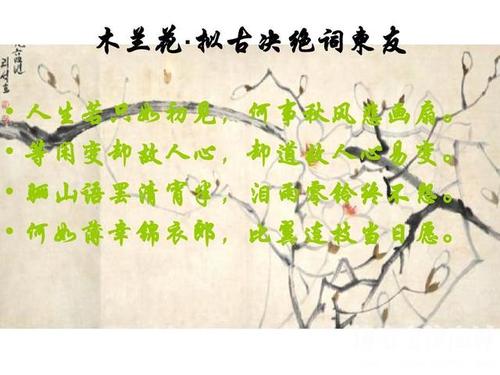 木兰花·拟古决绝词柬友
• 人生若只如初见,何事秋风悲画扇。
• 等闲变却故人心,却道故人心易变。
• 骊山语罢清宵半,泪雨零铃终不怨。
• 何如薄幸锦衣郎,比翼连枝当日愿。